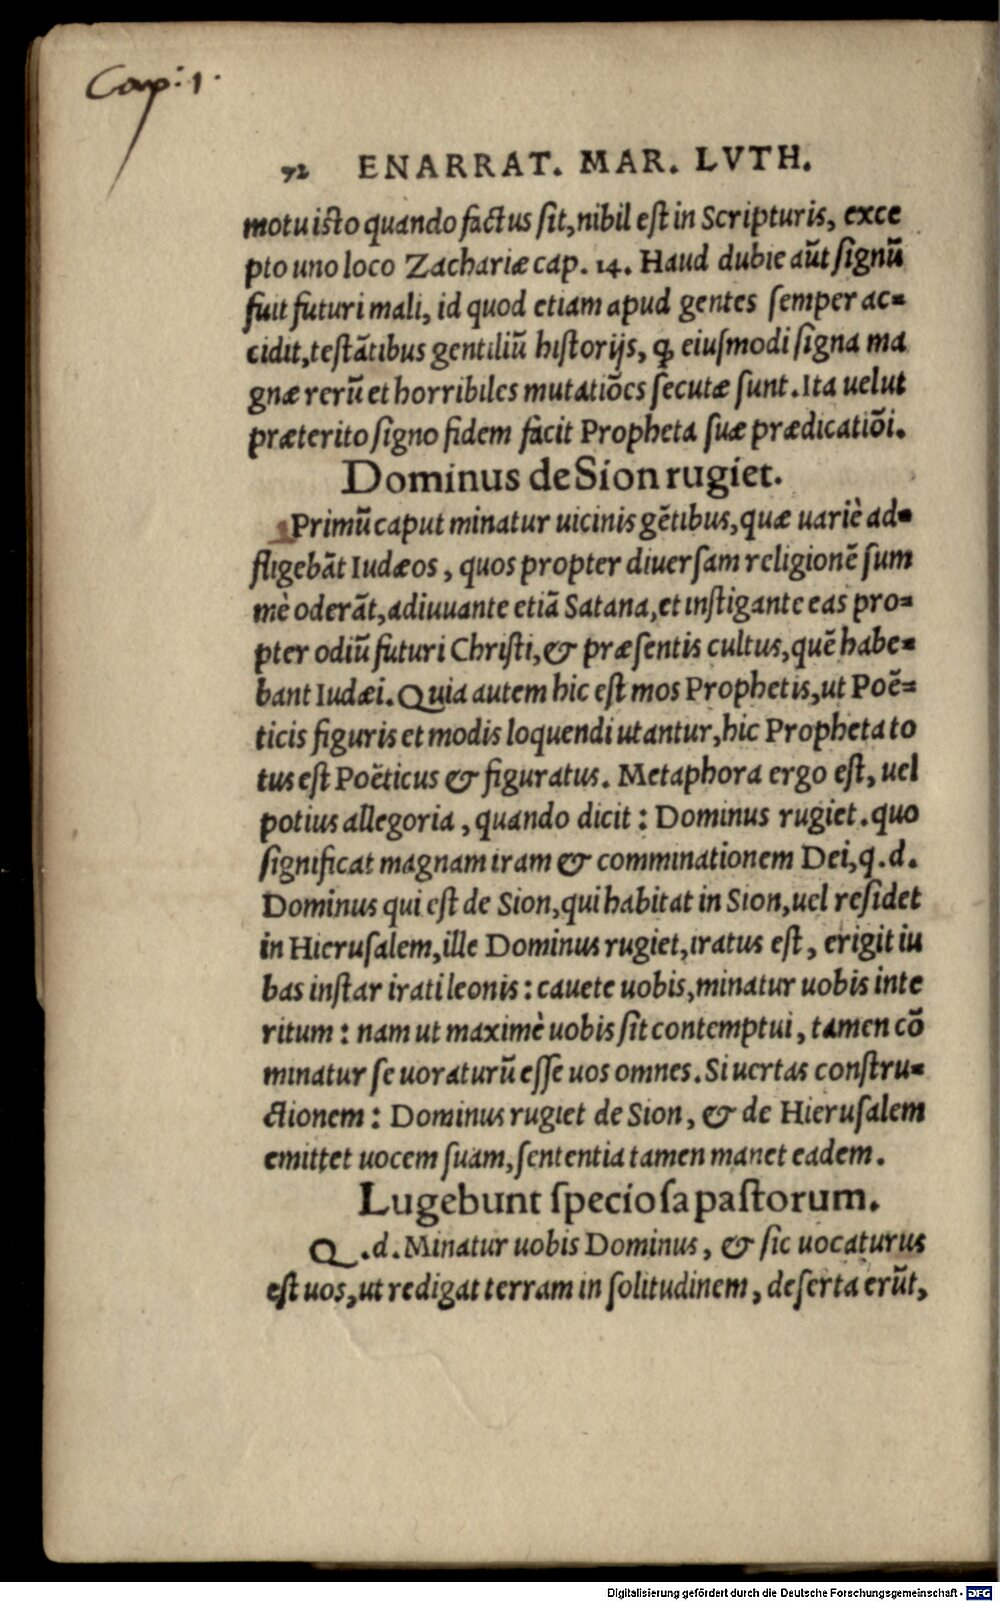 Cap: 1.
72 ENARRAT. MAR. LVTH.
motu isto quando factus sit, nihil est in Scripturis, exce
pto uno loco Zachariæ cap. 14. Haud dubie aūt signū
fuit futuri mali, id quod etiam apud gentes semper ac=
cidit, testātibus gentiliū historijs, ꝙ eiusmodi signa ma
gnæ rerū et horribiles mutatiōes secutæ sunt. Ita uelut
præterito signo fidem facit Propheta suæ prædicatiōi.
Dominus de Sion rugiet.
Primū caput minatur uicinis gētibus, quæ uariè ad=
fligebāt Iudæos, quos propter diuersam religionē sum
mè oderāt, adiuuante etiā Satana, et instigante eas pro=
pter odiū futuri Christi, & præsentis cultus, quē habe=
bant Iudæi. Quia autem hic est mos Prophetis, ut Poë=
ticis figuris et modis loquendi utantur, hic Propheta to
tus est Poëticus & figuratus. Metaphora ergo est, uel
potius allegoria, quando dicit: Dominus rugiet. quo
significat magnam iram & comminationem Dei, q.d.
Dominus qui est de Sion, qui habitat in Sion, uel residet
in Hierusalem, ille Dominus rugiet, iratus est, erigit iu
bas instar irati leonis: cauete uobis, minatur uobis inte
ritum: nam ut maximè uobis sit contemptui, tamen cō
minatur se uoraturū esse uos omnes. Si uertas constru=
ctionem: Dominus rugiet de Sion, & de Hierusalem
emittet uocem suam, sententia tamen manet eadem.
Lugebunt speciosa pastorum.
Q.d. Minatur uobis Dominus, & sic uocaturus
est uos, ut redigat terram in solitudinem, deserta erūt,
Digitalisierung gefördert durch die Deutsche Forschungsgemeinschaft - DFG